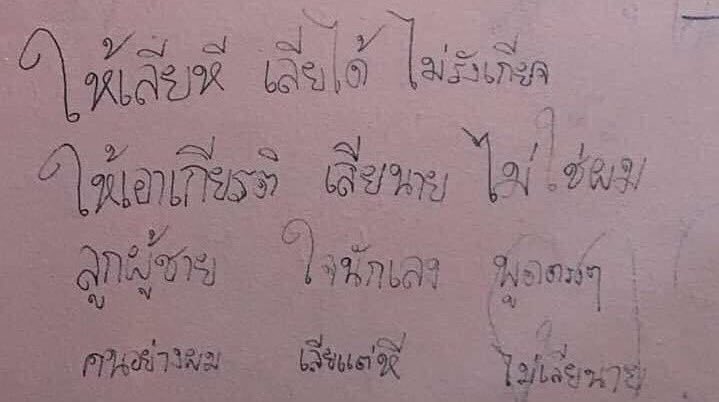 ให้เลียหี เลียได้ ไม่รังเกียจ
ให้เอาเกียรติ เลียนาย ไม่ใช่ผม
ลูกผู้ชาย ใจนักเลง พูดตรงๆ
คนอย่างผม เลียแต่หี ไม่เลียนาย